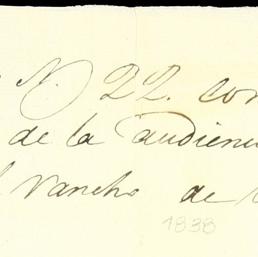 N. 22. con
de la audienc
l rancho de
1838